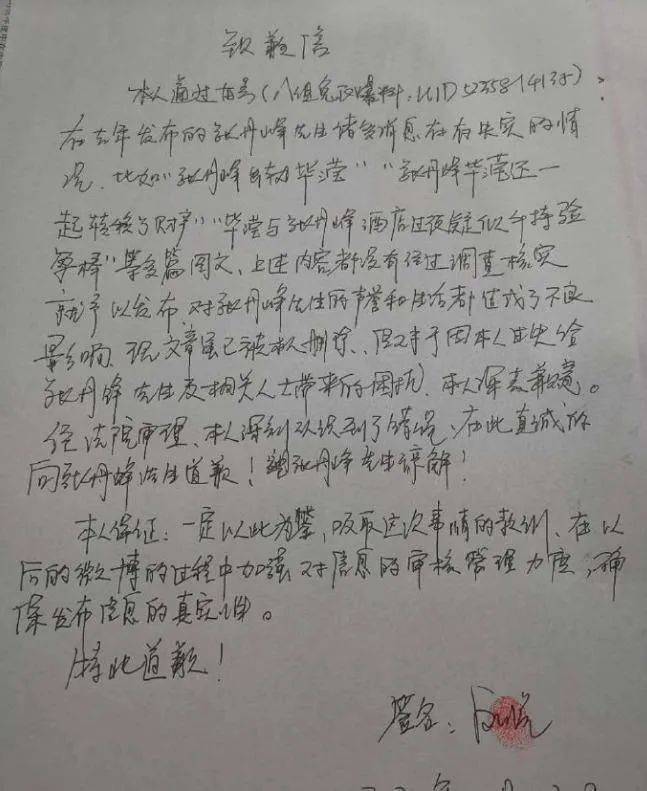 致歉信
本人通过百号(八组兔区爆料,UID 5235814135),
在去年发布的张丹峰先生诸多消息存在失实的情
况,比如"张丹峰毕滢""张丹峰毕滢还一
起转移了财产""毕滢与张丹峰酒店过夜疑似
等多篇图文,上述内容都没有经过调查核实
就予以发布,对张丹峰先生的声誉和生活都造成了不良
影响,现文章虽已被本人删除,但对于因本人过失给
张丹峰先生及相关人士带来的困扰,本人深表歉意。
经法院审理,本人深刻认识到了错误,在此真诚的
向张丹峰先生道歉!张丹峰先生谅解!
本人保证:一定以此为鉴,吸取这次事情的教训,在以
后的微博的过程中加强对信息的审核管理力度,确
保发布信息的真实性。
特此道歉!
签名: